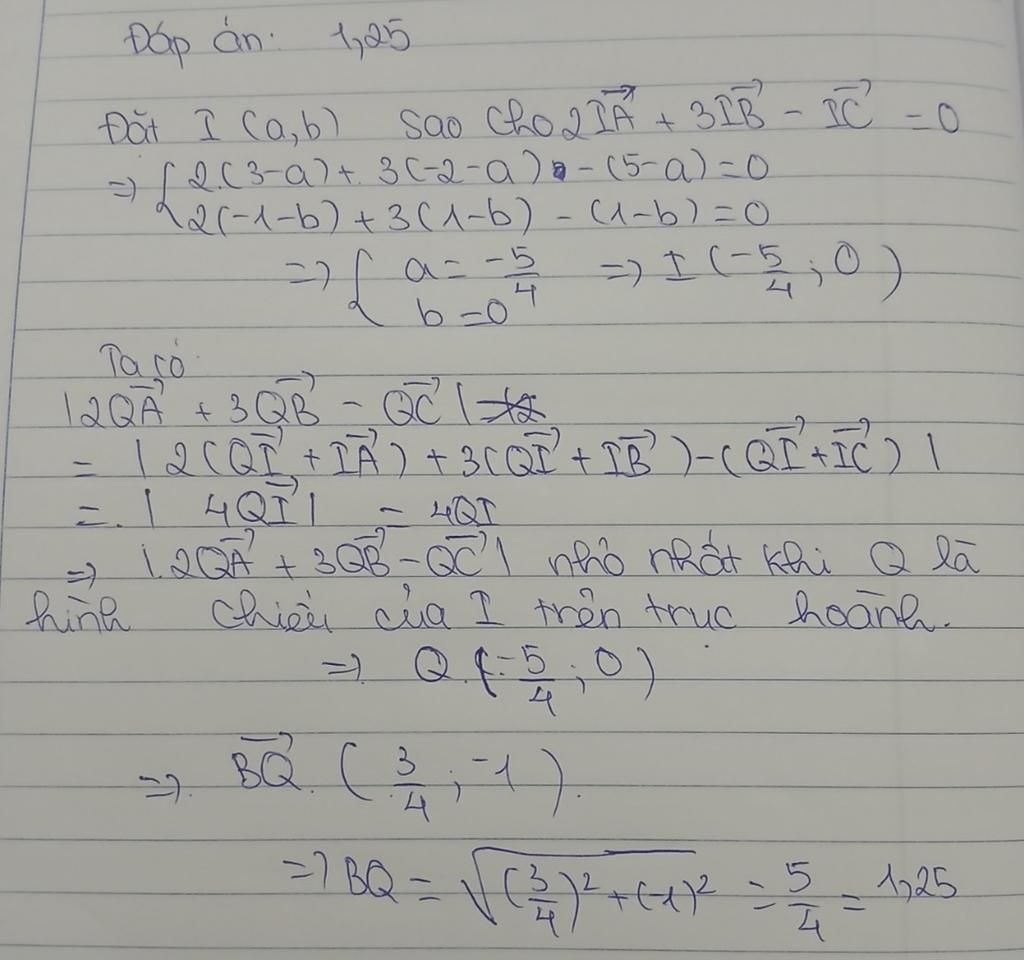 Đáp án: 1,25
Đặt I (a,b) sao cho 2IA→ + 3IB→ - IC→ = 0
=> { 2(3-a) + 3(-2-a) - (5-a) = 0
2(-1-b) + 3(1-b) - (1-b) = 0
=> { a = -5/4 => I (-5/4; 0)
b = 0
Ta có:
|2QA→ + 3QB→ - QC→|
= |2(QI→ + IA→) + 3(QI→ + IB→) - (QI→ + IC→)|
= |4QI→| = 4QI
=> |2QA→ + 3QB→ - QC→| nhỏ nhất khi Q là
hình chiếu của I trên trục hoành.
=> Q (-5/4; 0)
=> BQ→ (3/4; -1).
=> BQ = √((3/4)² + (-1)²) = 5/4 = 1,25